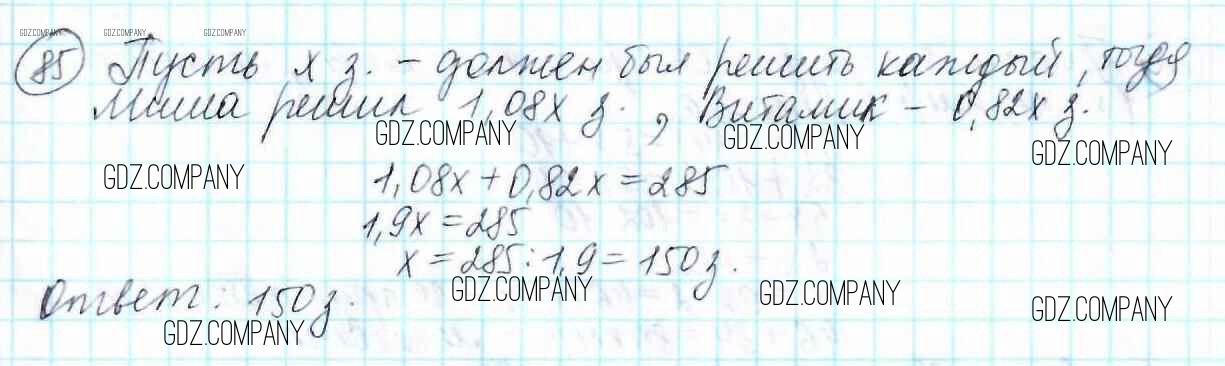 GDZ.COMPANY GDZ.COMPANY GDZ.COMPANY
85 Пусть x з. – должен был решить каждый, тогда
Миша решил 1,08x з., Виталик – 0,82x з.
GDZ.COMPANY GDZ.COMPANY GDZ.COMPANY
GDZ.COMPANY
1,08x + 0,82x = 285
1,9x = 285
x = 285 : 1,9 = 150 з.
GDZ.COMPANY GDZ.COMPANY GDZ.COMPANY
Ответ: 150 з.
GDZ.COMPANY